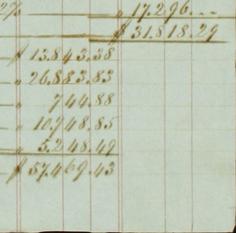 17.296.--
$ 31.818.29
$ 13.843.38
" 26.883.83
" 744.88
" 10.748.85
" 5.248.49
$ 57.469.43